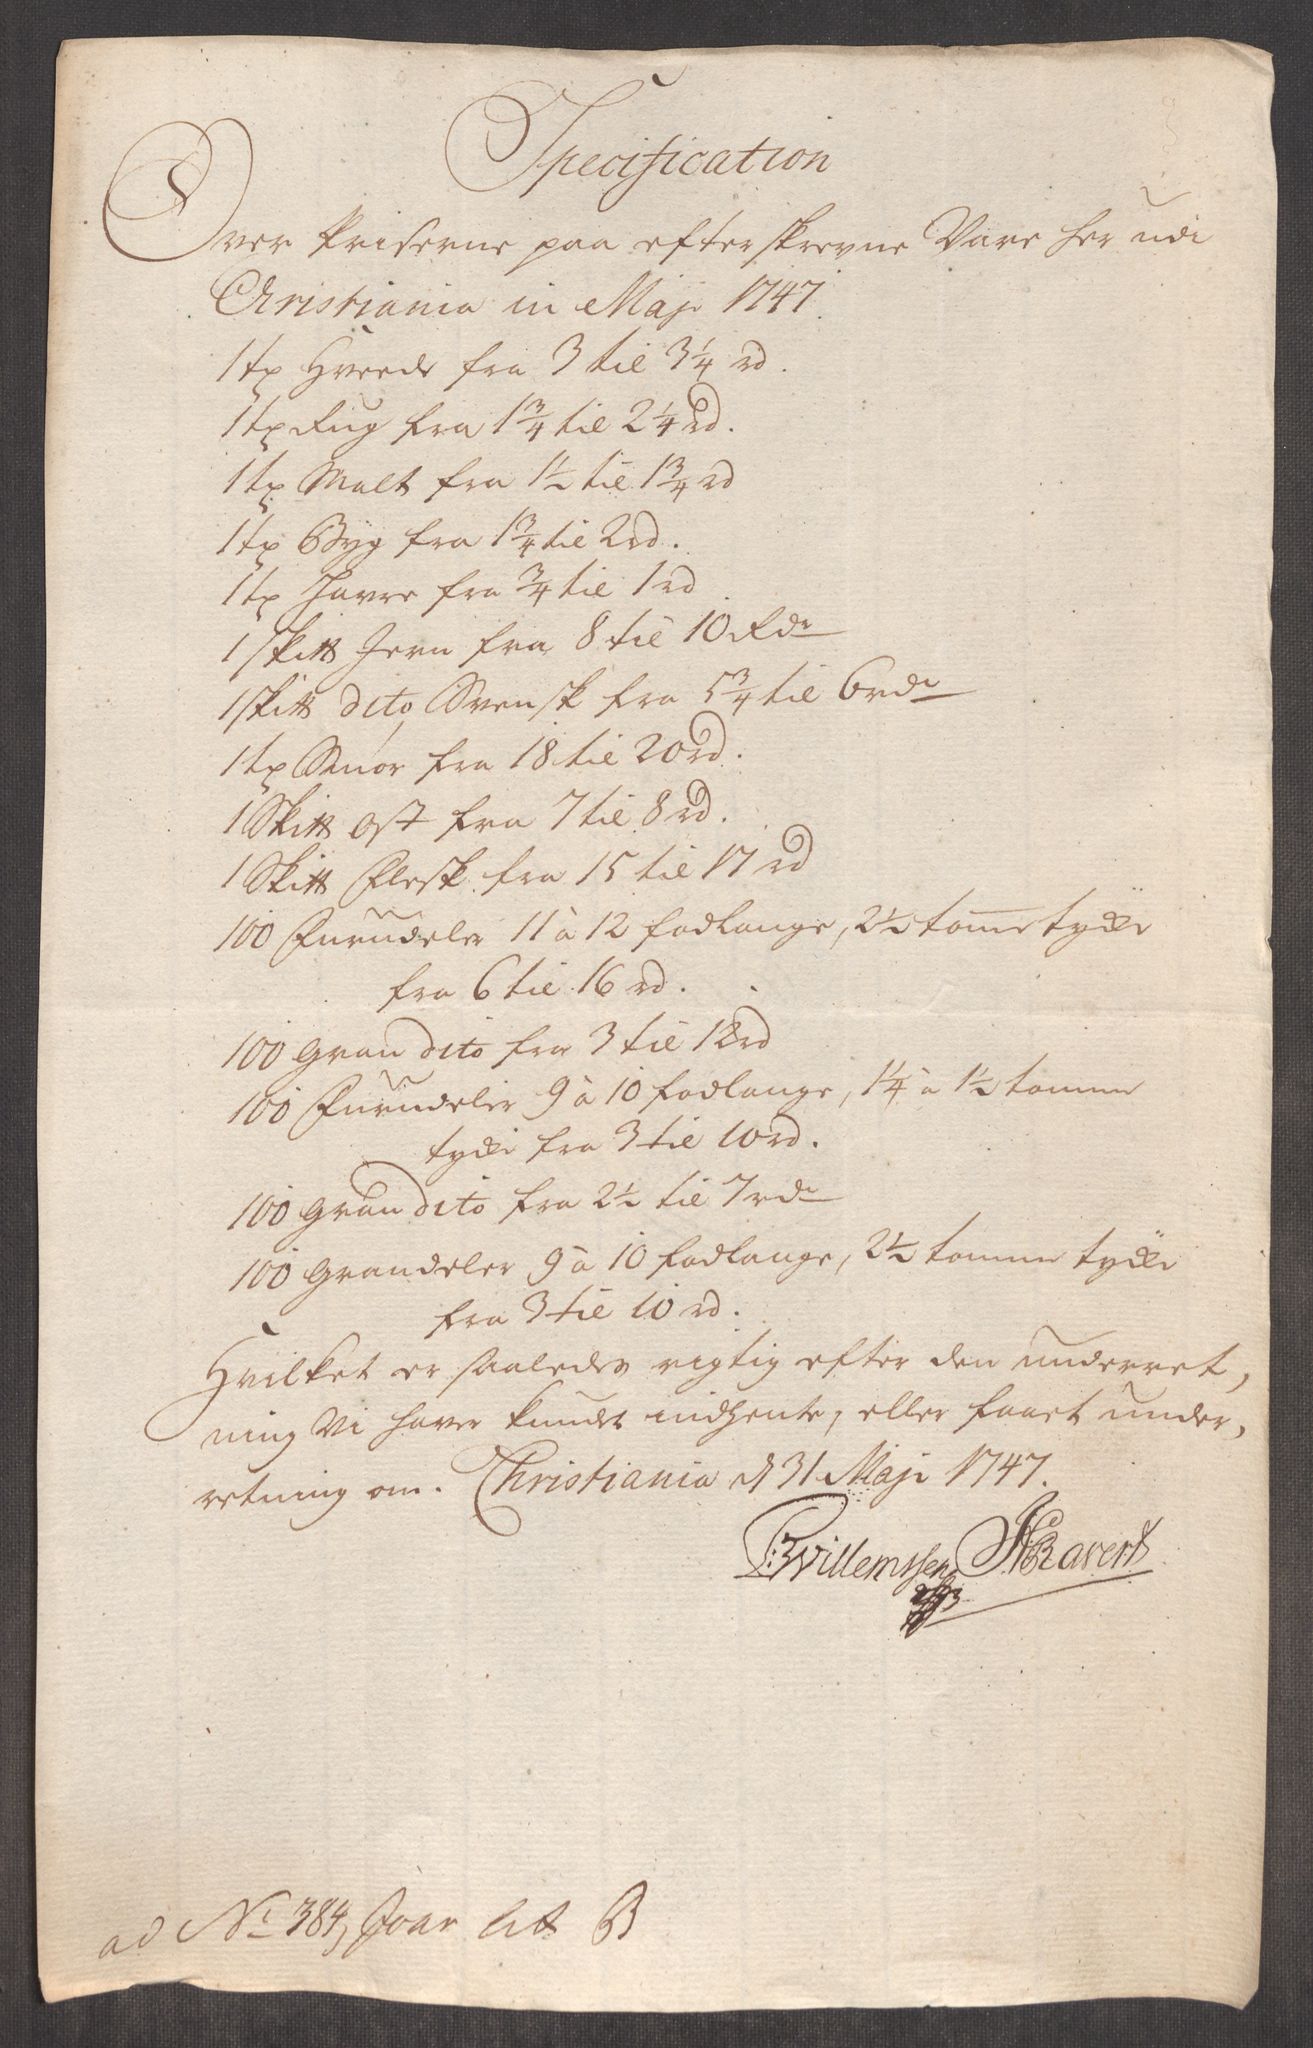 Specification
Over Priserne paa efterskrevne Vare her udi
Christiania in Maji 1747.
1 tp Hvede fra 3 til 3 1/4 rd.
1 tp Rug fra 1 3/4 til 2 1/4 rd.
1 tp Malt fra 1 1/2 til 1 3/4 rd
1 tp Byg fra 1 3/4 til 2 rd.
1 tp Havre fra 3/4 til 1 rd
1 skitt Jern fra 8 til 10 Rdr
1 skitt dito Svensk fra 5 3/4 til 6 rdr
1 tp Smør fra 18 til 20 rd.
1 Skitt Ost fra 7 til 8 rd.
1 Skitt Flesk fra 15 til 17 rd
100 Furudeler 11 a 12 fodlange, 2 1/2 tomme tycke
fra 6 til 16 rd.
100 Gran dito fra 3 til 12 rd
100 Furudeler 9 a 10 fodlange, 1 1/4 a 1 1/2 tomme
tycke fra 3 til 10 rd.
100 Gran dito fra 2 1/2 til 7 rdr
100 Grandeler 9 a 10 fodlange, 2 1/2 tomme tycke
fra 3 til 10 rd.
Hvilket er saaledes rigtig efter den underret,
ning Vi haver kundet indhente, eller faaet under,
retning om. Christiania d 31 Maji 1747.
Willemssen Ravert
ad No 384, Foar Lit B